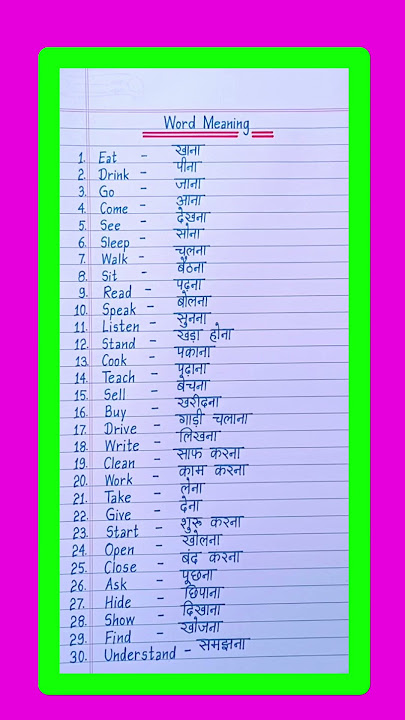 Word Meaning
1. Eat - खाना
2. Drink - पीना
3. Go - जाना
4. Come - आना
5. See - देखना
6. Sleep - सोना
7. Walk - चलना
8. Sit - बैठना
9. Read - पढ़ना
10. Speak - बोलना
11. Listen - सुनना
12. Stand - खड़ा होना
13. Cook - पकाना
14. Teach - पढ़ाना
15. Sell - बेचना
16. Buy - खरीदना
17. Drive - गाड़ी चलाना
18. Write - लिखना
19. Clean - साफ करना
20. Work - काम करना
21. Take - लेना
22. Give - देना
23. Start - शुरू करना
24. Open - खोलना
25. Close - बंद करना
26. Ask - पूछना
27. Hide - छिपाना
28. Show - दिखाना
29. Find - खोजना
30. Understand - समझना